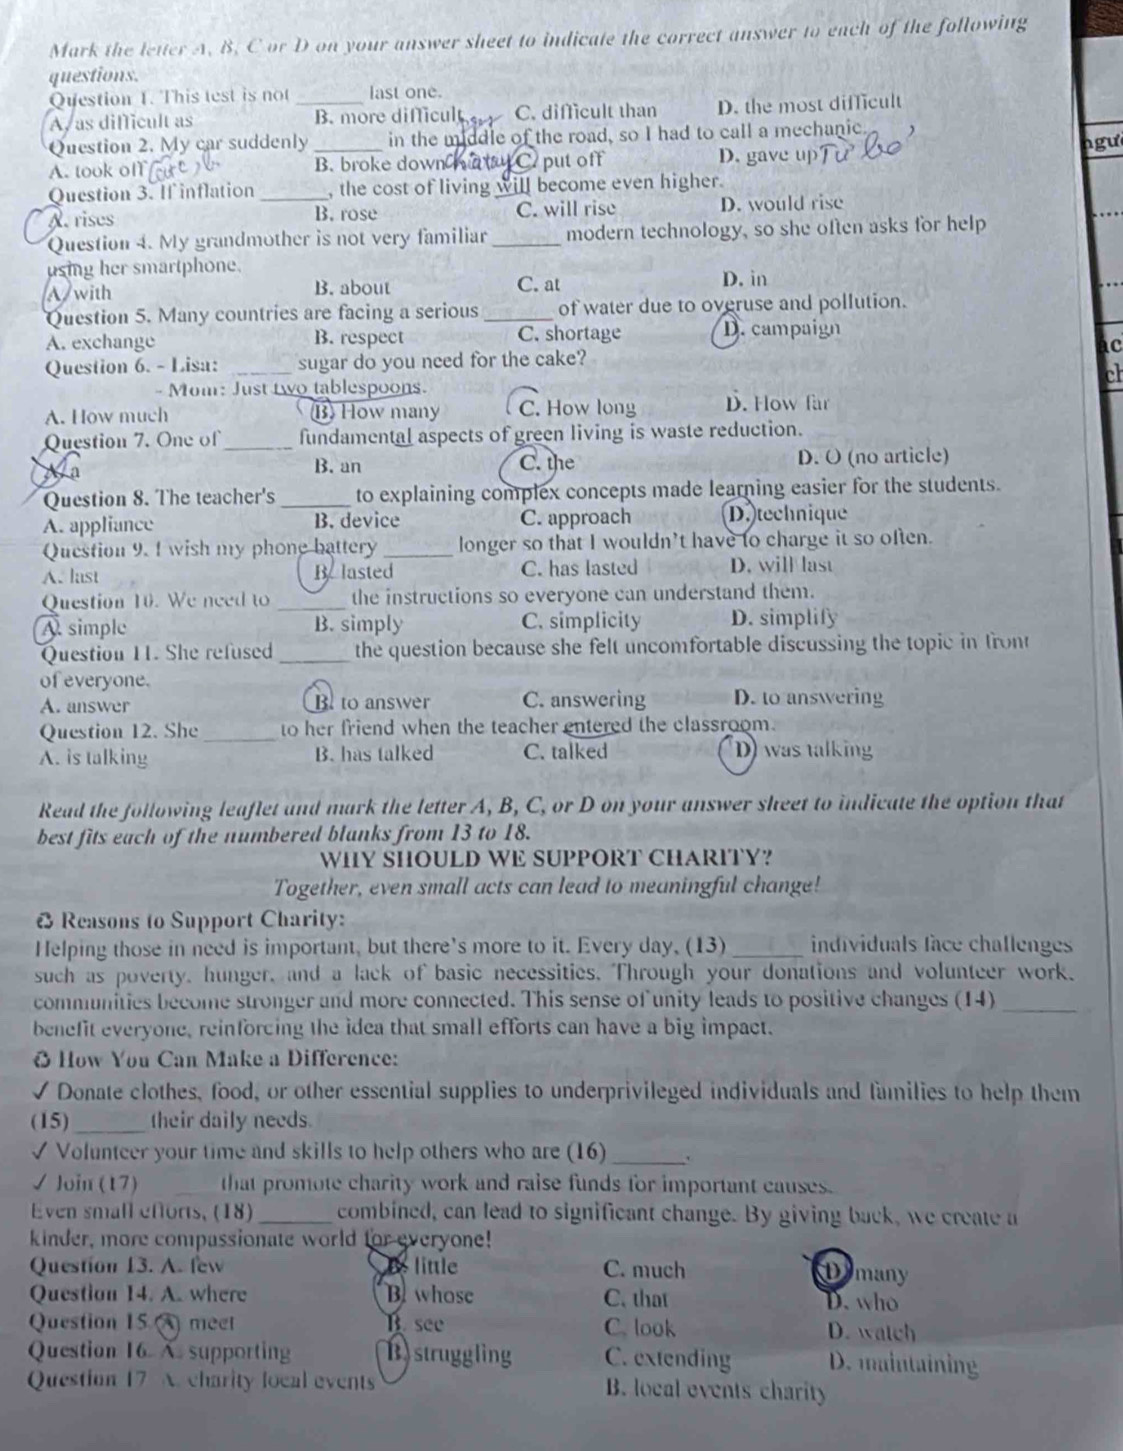 Mark the letter A, B, C or D on your answer sheet to indicate the correct answer to each of the following
questions.
Question 1. This test is not ______ last one.
A. as difficult as B. more difficult C. difficult than D. the most difficult
Question 2. My car suddenly ______ in the middle of the road, so I had to call a mechanic.
A. took off B. broke down C. put off D. gave up Từ bỏ
Question 3. If inflation ______, the cost of living will become even higher.
A. rises B. rose C. will rise D. would rise
Question 4. My grandmother is not very familiar ______ modern technology, so she often asks for help
using her smartphone.
A. with B. about C. at D. in
Question 5. Many countries are facing a serious ______ of water due to overuse and pollution.
A. exchange B. respect C. shortage D. campaign
Question 6. - Lisa: ______ sugar do you need for the cake?
- Mom: Just two tablespoons.
A. How much B. How many C. How long D. How far
Question 7. One of ______ fundamental aspects of green living is waste reduction.
A. a B. an C. the D. O (no article)
Question 8. The teacher's ______ to explaining complex concepts made learning easier for the students.
A. appliance B. device C. approach D. technique
Question 9. I wish my phone battery ______ longer so that I wouldn't have to charge it so often.
A. last B. lasted C. has lasted D. will last
Question 10. We need to ______ the instructions so everyone can understand them.
A. simple B. simply C. simplicity D. simplify
Question 11. She refused ______ the question because she felt uncomfortable discussing the topic in front
of everyone.
A. answer B. to answer C. answering D. to answering
Question 12. She ______ to her friend when the teacher entered the classroom.
A. is talking B. has talked C. talked D. was talking
Read the following leaflet and mark the letter A, B, C, or D on your answer sheet to indicate the option that
best fits each of the numbered blanks from 13 to 18.
WHY SHOULD WE SUPPORT CHARITY?
Together, even small acts can lead to meaningful change!
Reasons to Support Charity:
Helping those in need is important, but there's more to it. Every day, (13) ______ individuals face challenges
such as poverty, hunger, and a lack of basic necessities. Through your donations and volunteer work,
communities become stronger and more connected. This sense of unity leads to positive changes (14) ______
benefit everyone, reinforcing the idea that small efforts can have a big impact.
How You Can Make a Difference:
✓ Donate clothes, food, or other essential supplies to underprivileged individuals and families to help them
(15) ______ their daily needs.
✓ Volunteer your time and skills to help others who are (16) ______.
✓ Join (17) ______ that promote charity work and raise funds for important causes.
Even small efforts, (18) ______ combined, can lead to significant change. By giving back, we create a
kinder, more compassionate world for everyone!
Question 13. A. few B. little C. much D. many
Question 14. A. where B. whose C. that D. who
Question 15. A. meet B. see C. look D. watch
Question 16. A. supporting B. struggling C. extending D. maintaining
Question 17. A. charity local events B. local events charity